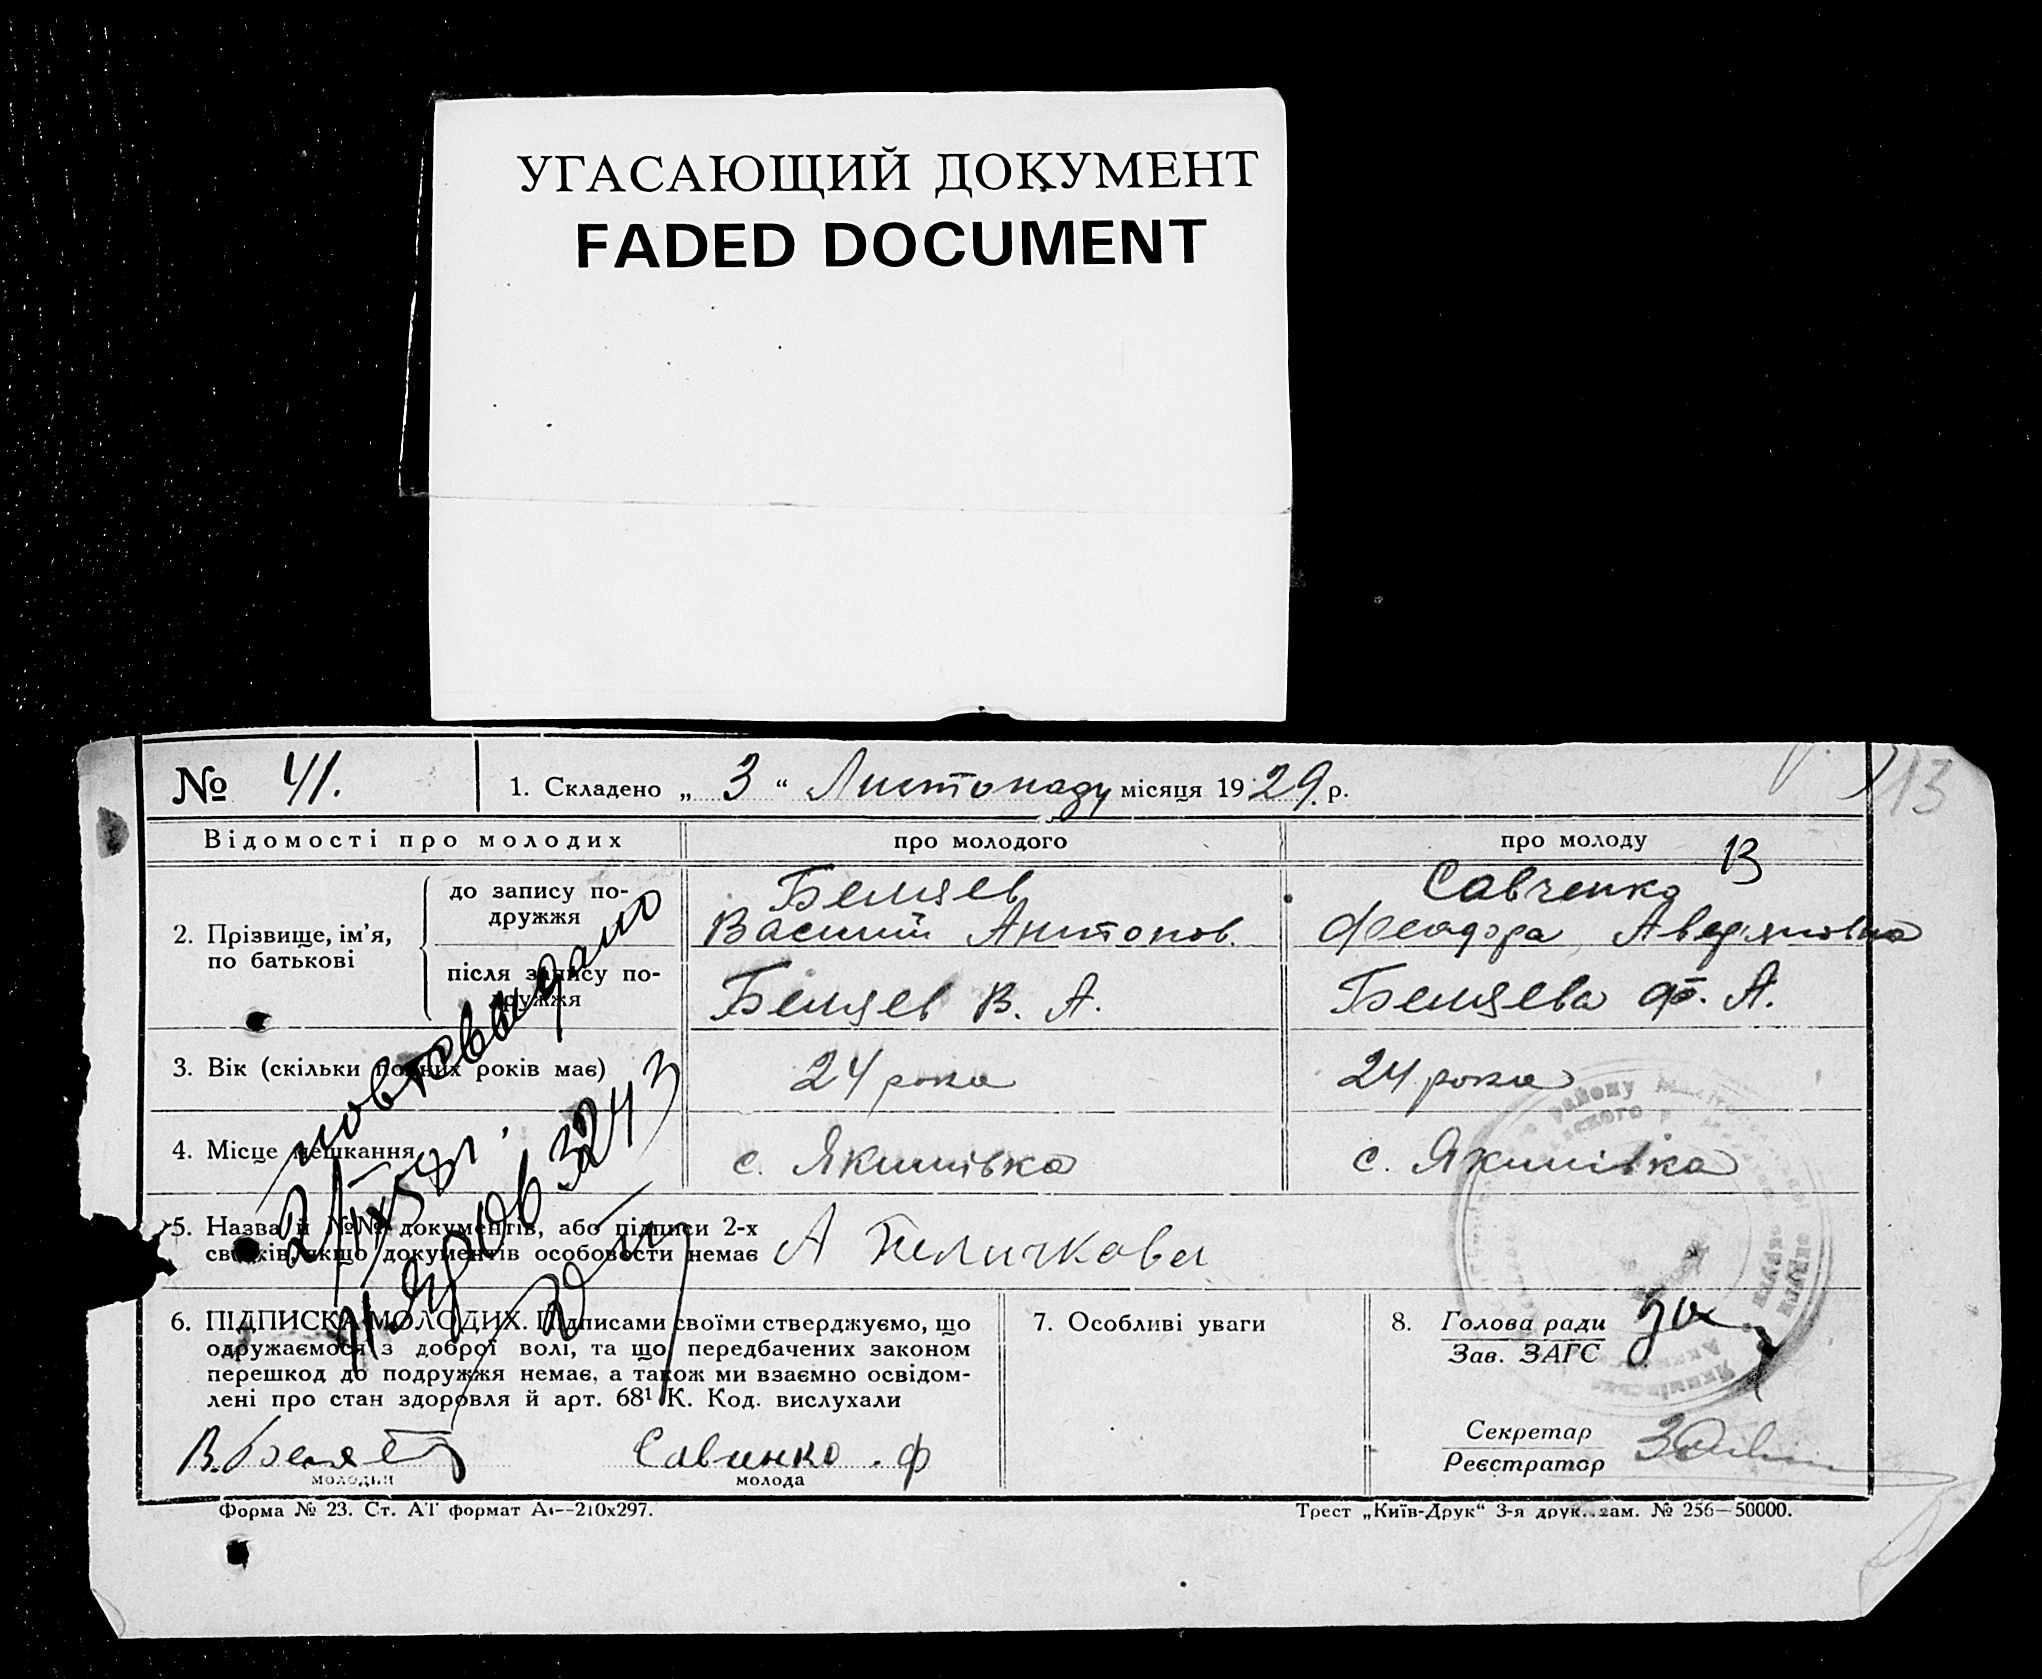 УГАСАЮЩИЙ ДОКУМЕНТ
FADED DOCUMENT
№ 41. 1. Складено „ 3 “ Листопаду місяця 1929. р.
13
Відомості про молодих про молодого про молоду 13
2. Прізвище, ім'я, по батькові
до запису по-
дружжя
Беляев
Василий Антонов.
Савченко
Феодора Авер'яновна
після запису по-
дружжя
Беляев В. А.
Беляева Ф. А.
3. Вік (скільки повних років має) 24 рока 24 рока
4. Місце мешкання с. Якимівка с. Якимівка
5. Назва й №№ документів, або підписи 2-х
свідків, якщо документів особовости немає
повт. выдано
3243
6. ПІДПИСКА МОЛОДИХ. Підписами своїми стверджуємо, що
одружаємося з доброї волі, та що передбачених законом
перешкод до подружжя немає, а також ми взаємно освідом-
лені про стан здоров'я й арт. 68¹ К. Код. вислухали
молодий
Савченко . Ф
молода
7. Особливі уваги
8. Голова ради
Зав. ЗАГС
Секретар
Реєстратор
Форма № 23. Ст. АТ формат А4—210х297.
Трест „Київ-Друк“ 3-я друк. зам. № 256—50000.